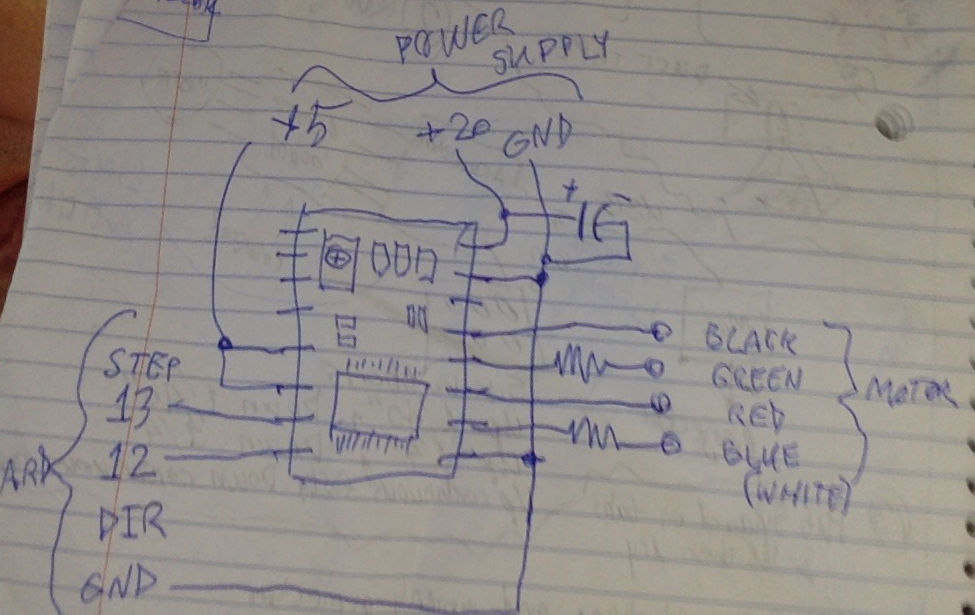 POWER
SUPPLY
+5 +20 GND
+
STEP
13
12
ARD
DIR
GND
BLACK
GREEN
RED
BLUE
(WHITE)
MOTOR